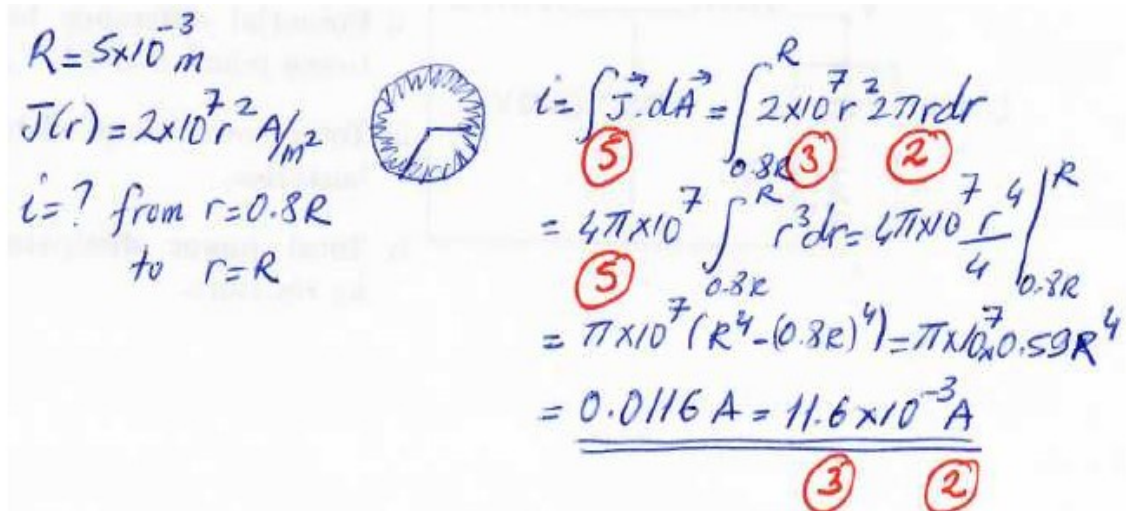 R = 5x10⁻³ m
J(r) = 2x10⁷ r² A/m²
i = ? from r = 0.8R
to r = R
i = ∫ J⃗ . dA⃗ = ∫_{0.8R}^{R} 2x10⁷ r² 2πr dr
5 3 2
= 4πx10⁷ ∫_{0.8R}^{R} r³ dr = 4πx10⁷ r⁴/4 |_{0.8R}^{R}
5
= πx10⁷ (R⁴ - (0.8R)⁴) = πx10⁷ x 0.59R⁴
= 0.0116 A = 11.6 x10⁻³ A
3 2